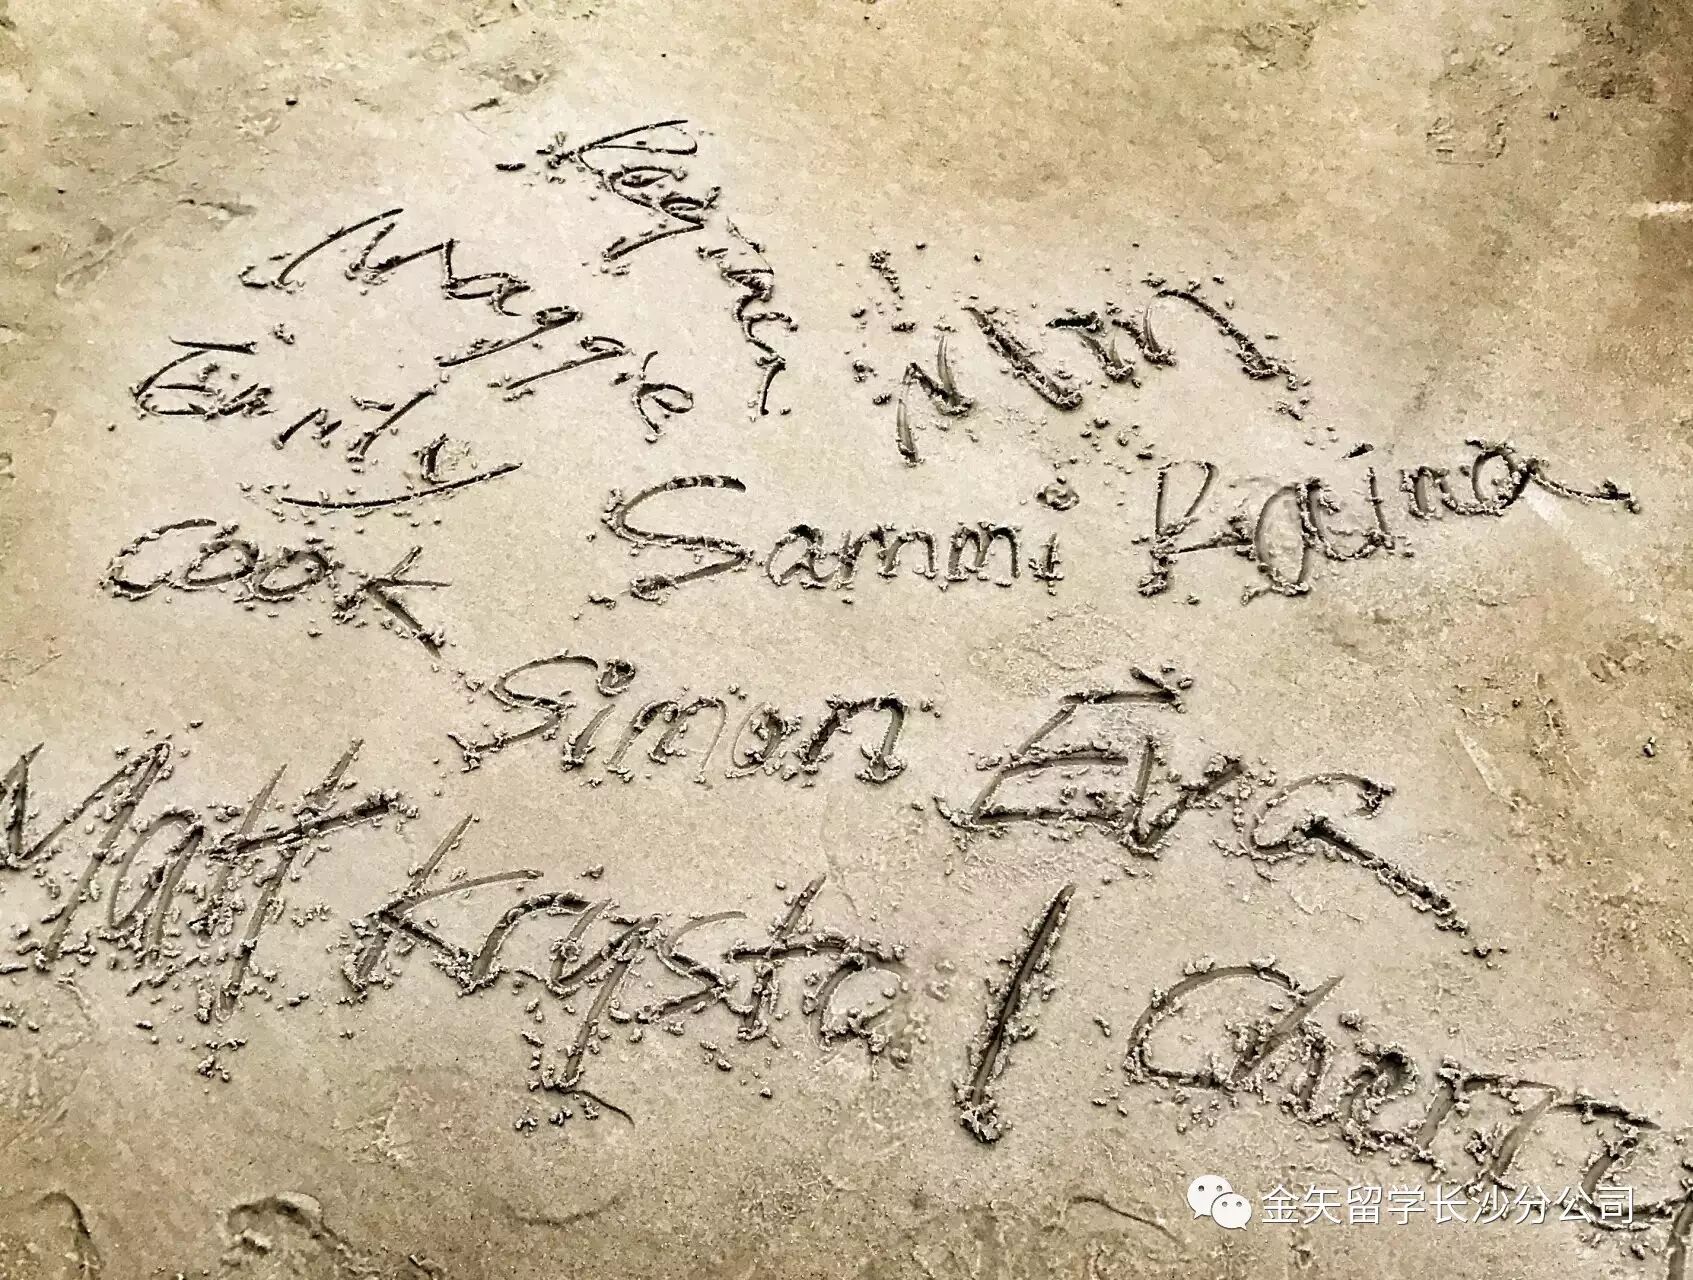 Regina
Maggie
Emily
Cook Sammi Raina
Simon Eva
Matt Krystal Cherry
金矢留学长沙分公司